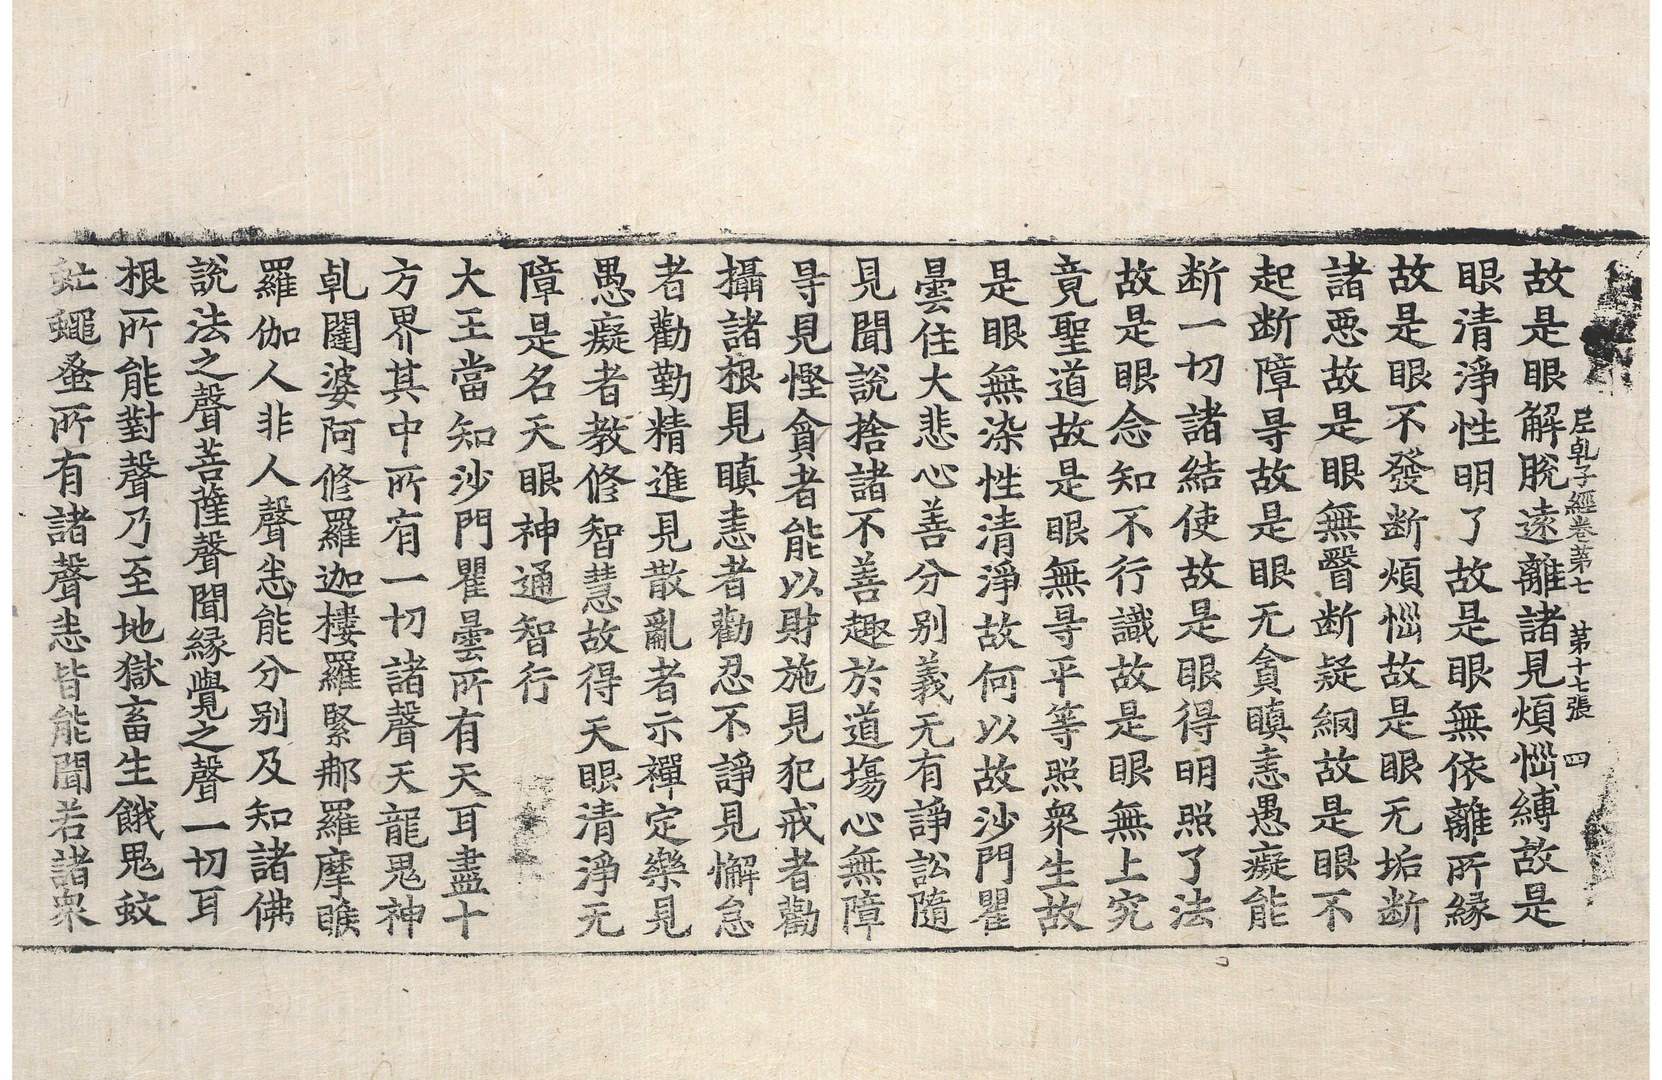 尼乹子經卷第七　第十七張　四
故是眼解脫遠離諸見煩惱縛故是
眼清淨性明了故是眼無依離所緣
故是眼不發断煩惱故是眼无垢断
諸惡故是眼無瞖断疑網故是眼不
起断障㝵故是眼无貪瞋恚愚癡能
断一切諸結使故是眼得明照了法
故是眼念知不行識故是眼無上究
竟聖道故是眼無㝵平等照衆生故
是眼無染性清淨故何以故沙門瞿
曇住大悲心善分别義无有諍訟隨
見聞說捨諸不善趣於道塲心無障
㝵見慳貪者能以財施見犯戒者勸
攝諸根見瞋恚者勸忍不諍見懈怠
者勸勤精進見散亂者示禪定樂見
愚癡者教修智慧故得天眼清淨无
障是名天眼神通智行
大王當知沙門瞿曇所有天耳盡十
方界其中所有一切諸聲天龍鬼神
乹闥婆阿修羅迦樓羅緊那羅摩睺
羅伽人非人聲悉能分别及知諸佛
說法之聲菩薩聲聞緣覺之聲一切耳
根所能對聲乃至地獄畜生餓鬼蚊
虻蠅蚤所有諸聲悉皆能聞若諸衆